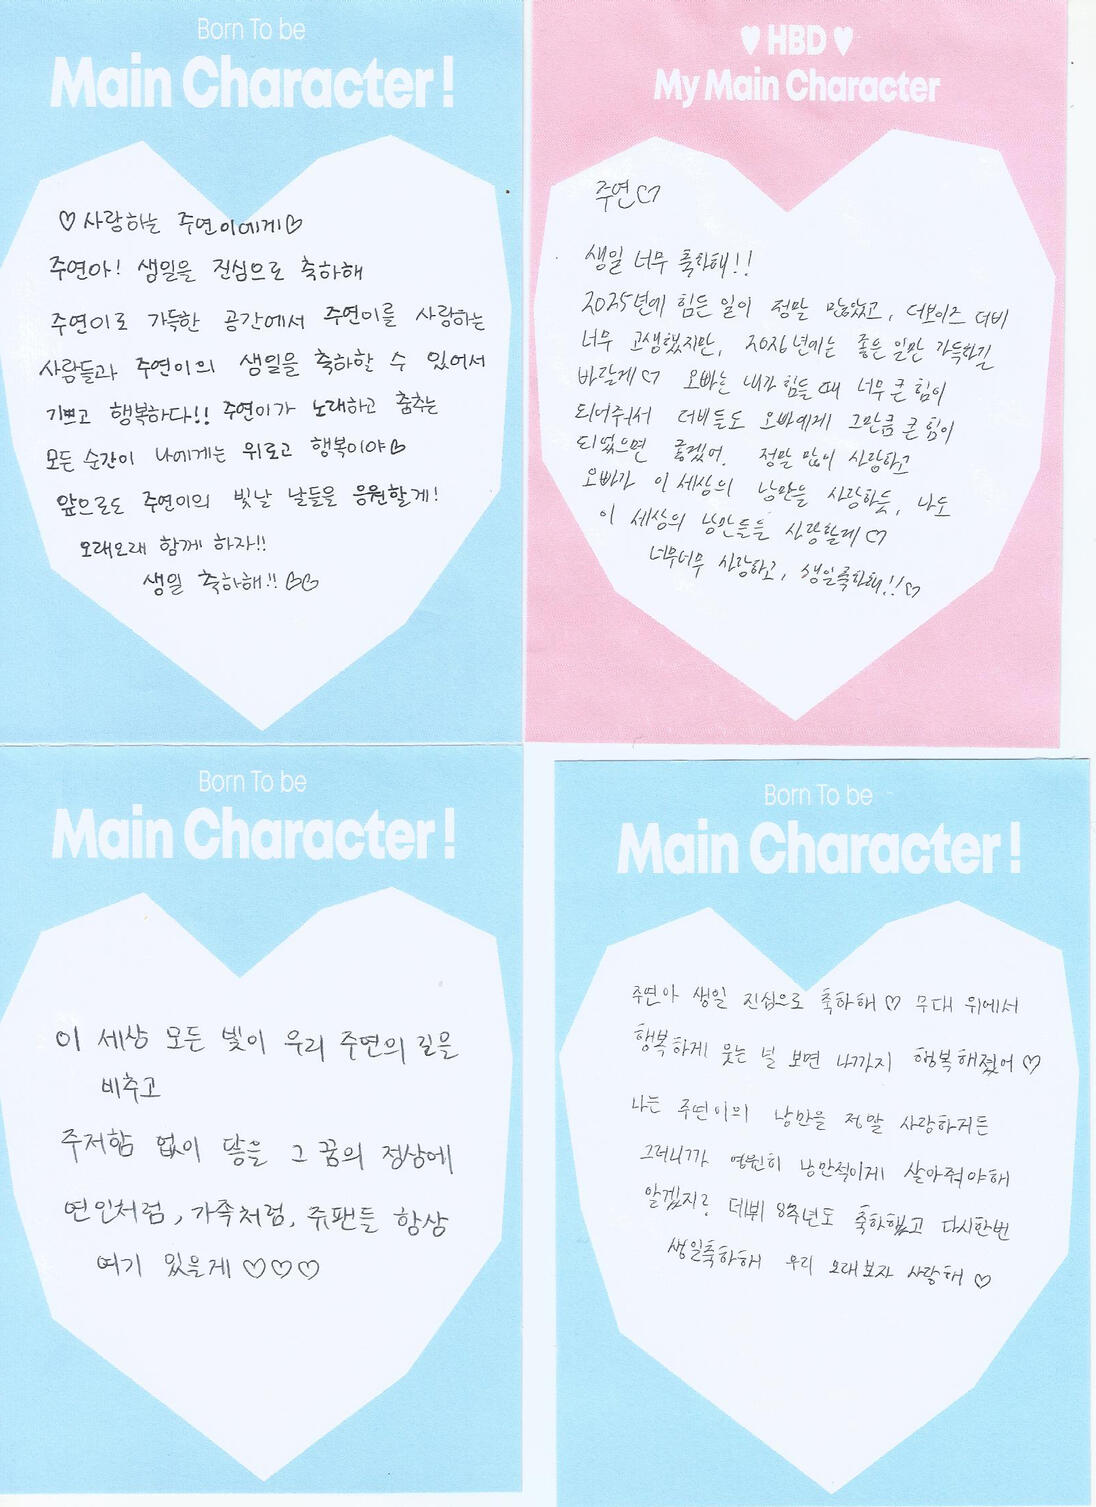 Born To be
Main Character!
♡사랑하는 주연이에게♡
주연아! 생일을 진심으로 축하해
주연이로 가득한 공간에서 주연이를 사랑하는
사람들과 주연이의 생일을 축하할 수 있어서
기쁘고 행복하다!! 주연이가 노래하고 춤추는
모든 순간이 나에게는 위로고 행복이야♡
앞으로도 주연이의 빛날 날들을 응원할게!
오래오래 함께 하자!!
생일 축하해!! ♡♡
♥ HBD ♥
My Main Character
주연♡
생일 너무 축하해!!
2025년에 힘든 일이 정말 많았고, 더보이즈 더비
너무 고생했지만, 2026년에는 좋은 일만 가득하길
바랄게♡ 오빠는 내가 힘들 때 너무 큰 힘이
되어줘서 더비들도 오빠에게 그만큼 큰 힘이
되었으면 좋겠어. 정말 많이 사랑하고
오빠가 이 세상의 낭만을 사랑하듯, 나도
이 세상의 낭만들을 사랑할게♡
너무너무 사랑하고, 생일축하해!!♡
Born To be
Main Character!
이 세상 모든 빛이 우리 주연의 길을
비추고
주저함 없이 닿을 그 꿈의 정상에
연인처럼, 가족처럼, 쥬팬들 항상
여기 있을게 ♡♡♡
Born To be
Main Character!
주연아 생일 진심으로 축하해♡ 무대 위에서
행복하게 웃는 널 보면 나까지 행복해졌어♡
나는 주연이의 낭만을 정말 사랑하거든
그러니까 영원히 낭만적이게 살아줘야해
알겠지? 데뷔 8주년도 축하했고 다시한번
생일축하해 우리 오래보자 사랑해♡